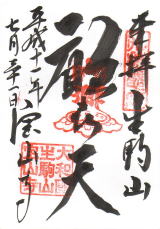 奉拝 生駒山
歓喜天
平成十一年
七月三十一日 宝山寺
大和國
生駒山
宝山寺